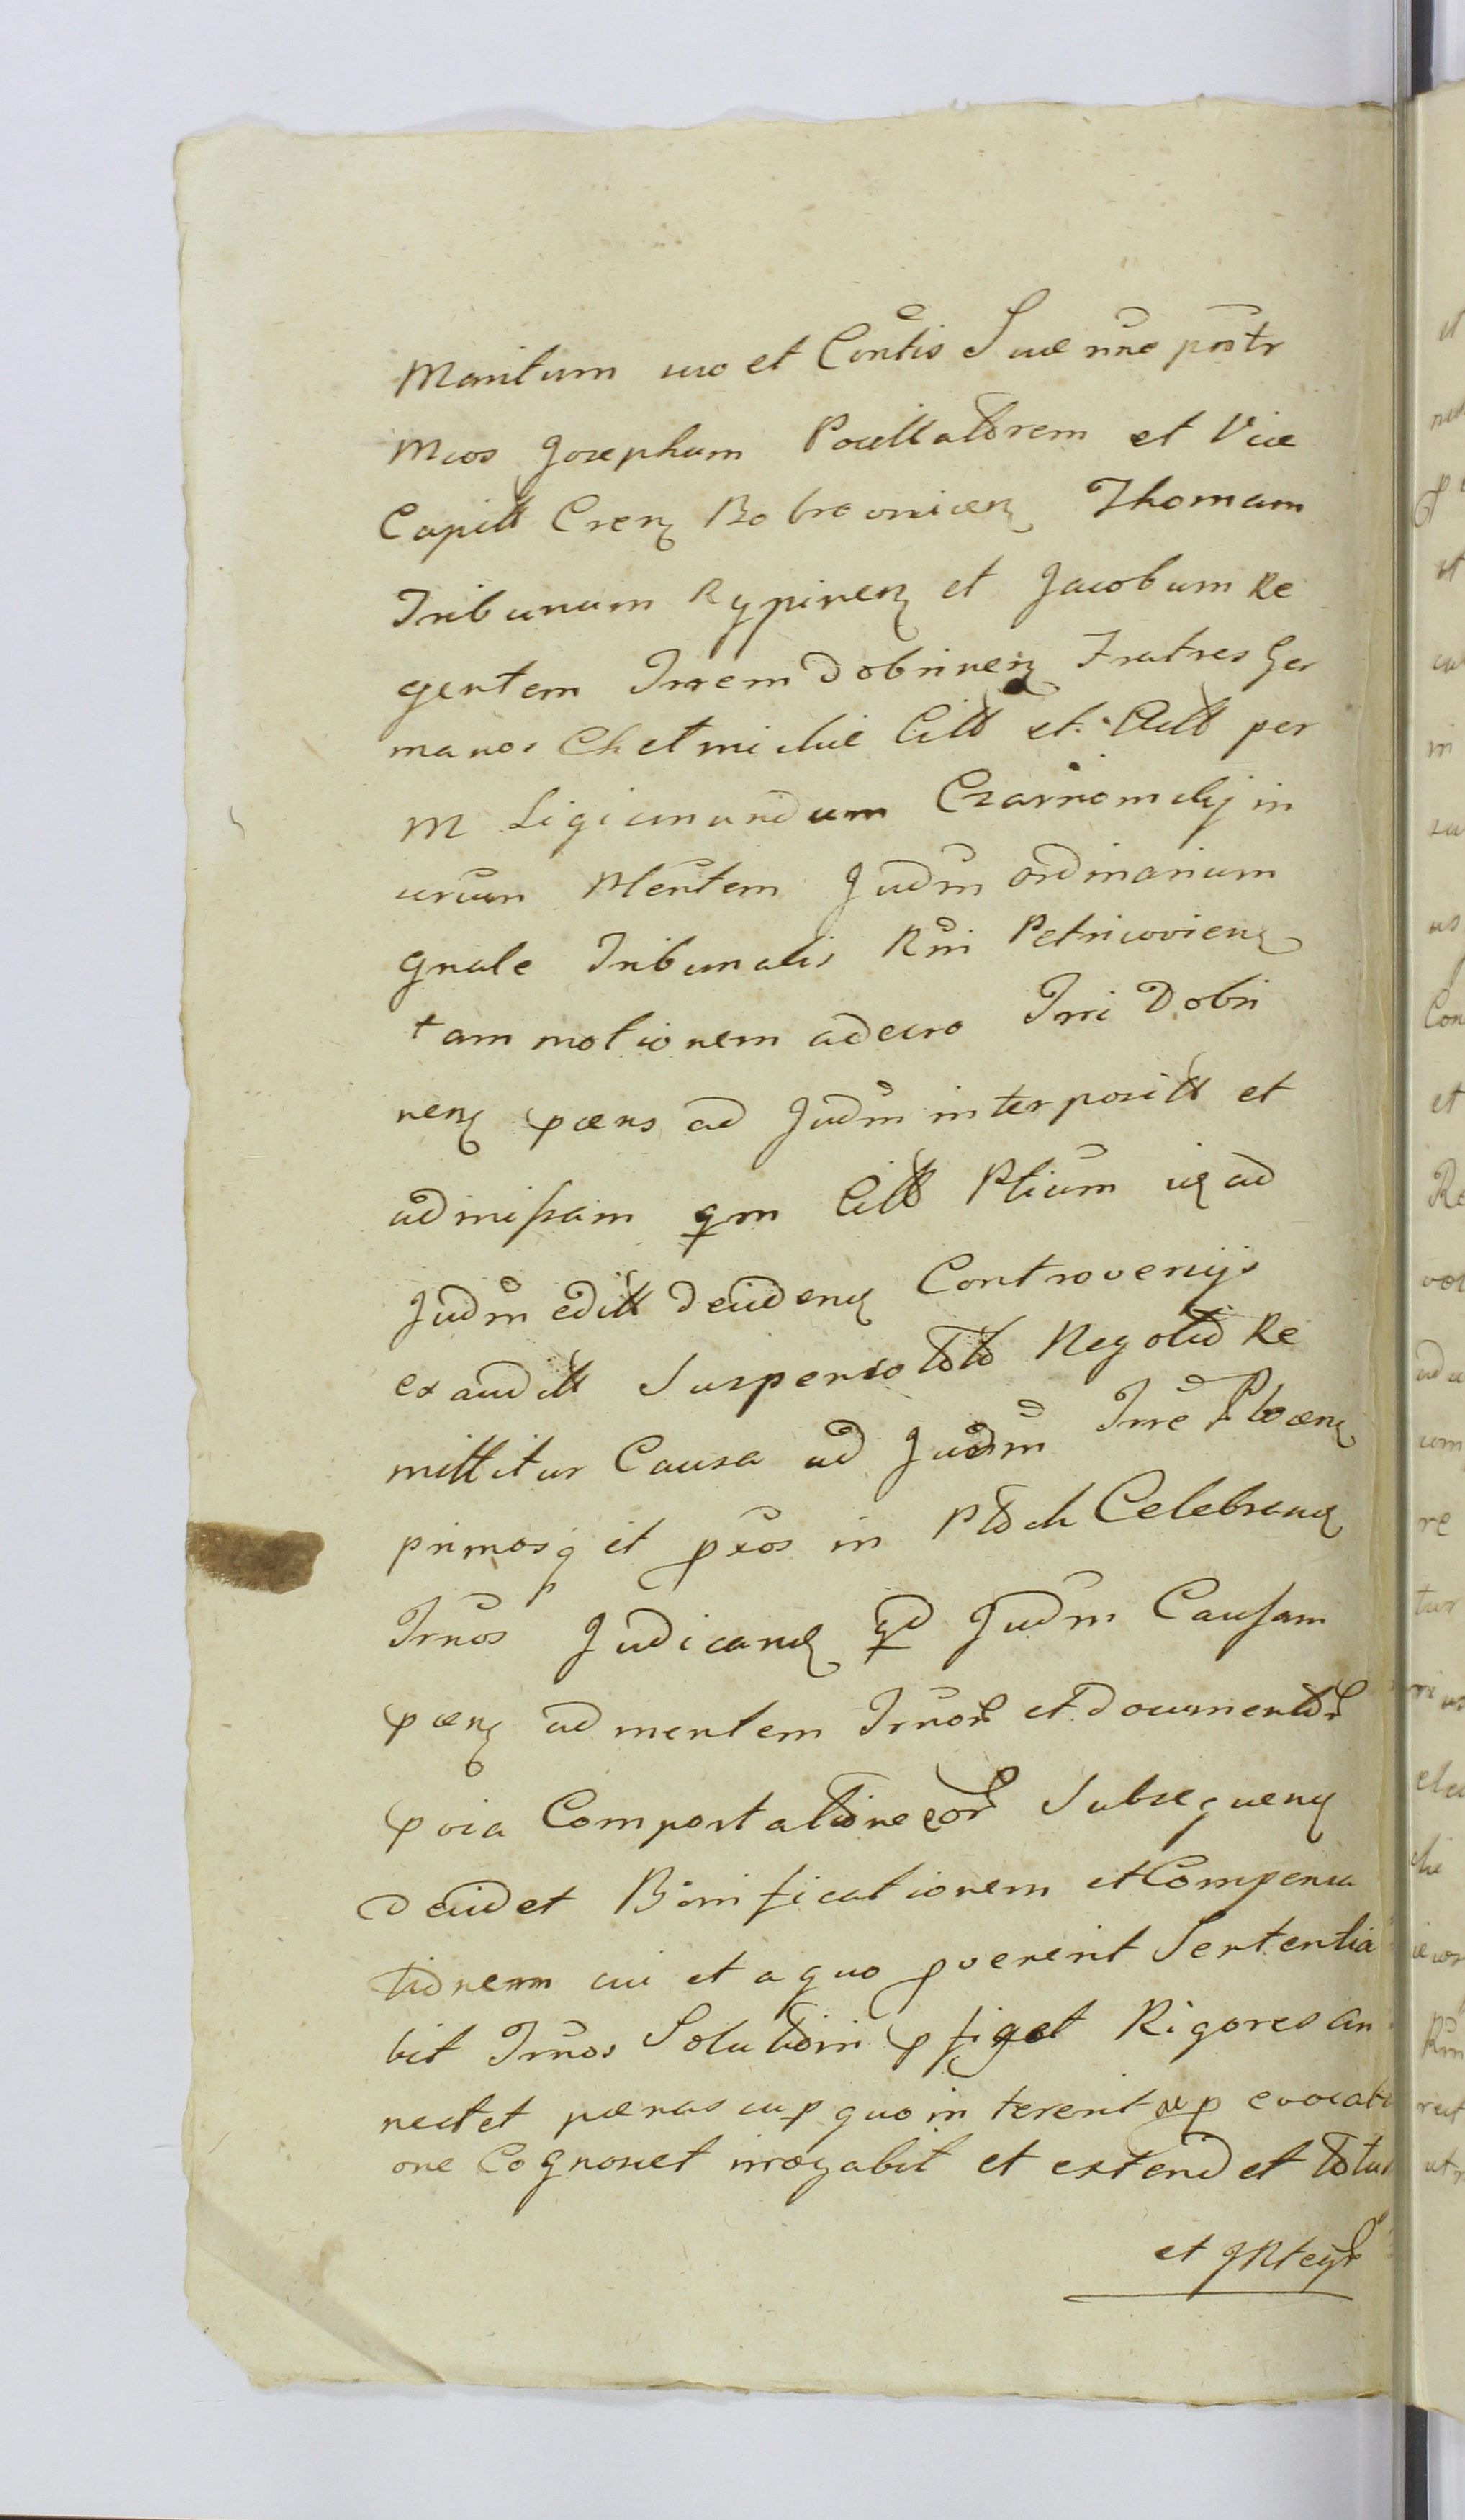 Maritum uo et Contis Suae nne postr
Mcos Josephum Pocillatorem et Vice
Capitt Cren Bobrownicen Thomam
Tribunum Rypinen et Jacobum Re
gentem Trrem Dobrinen Fratres Ger
manos Chełmickie Citt et Actt per
M Sigismundum Czarnomskij in
unum Mentem Judm ordinarium
gnale Tribunalis Rni Petricovien
tam motionem adeuro Trri Dobri
nen paens ad Judm interpositt et
admissam qm Citt Ptium iq ad
Judm editt deciden Controversijs
exauditt Suspenso toto Negotio Re
mittitur Causa ad Judm Trre Plocen
primosq et pxos in Płock Celebran
Trnos Judicand qd Judm Causam
paen ad mentem Trnor et documentor
pvia Comportatione eor Subsequen
decidet Bonificationem et Compensa
tionem cui et a quo pvenerit Sententia
bit Trnos Solutioni pfiget Rigores an
nectet paenas cuip quo in terent aep evocati
one Cognoscet irrogabit et extendet totum
et Integr